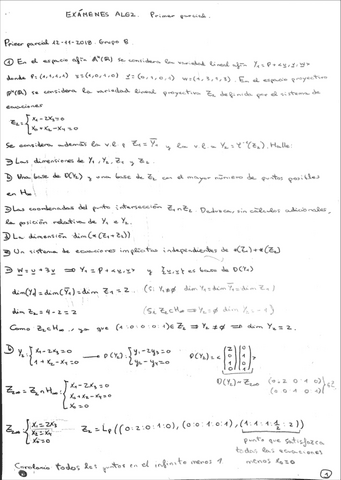 EXÁMENES ALG2. Primer parcial.
Primer parcial 12-11-2018. Grupo E
① En el espacio afín A⁴(R) se considera la variedad lineal afín Y₁ = P + <u, v, w>
donde P=(1,1,1,1) u=(1,0,1,0) v=(0,1,0,1) w=(1,3,1,3). En el espacio proyectivo
P⁴(R) se considera la variedad lineal proyectiva Z₂ definida por el sistema de
ecuaciones
Z₂ = { x₁ - 2x₃ = 0
x₀ + x₂ - x₄ = 0
Se considera además la v.l. Z₁ = Y̅₁ y la v.l. a Y₂ = (Z₂). Halle:
a) Las dimensiones de Y₁, Y₂, Z₁ y Z₂
b) Una base de D(Y₂) y una base de Z₂ con el mayor número de puntos posibles
en H∞
c) Las coordenadas del punto intersección Z₁ ∩ Z₂. Deduzca, sin cálculos adicionales,
la posición relativa de Y₁ e Y₂.
d) La dimensión dim(*(Z₁+Z₂))
e) Un sistema de ecuaciones implícitas independientes de *(Z₁)+*(Z₂)
a) w = u + 3v ⟹ Y₁ = P + <u, v> y {u, v} es base de D(Y₁)
dim(Y₁) = dim(Y̅₁) = dim Z₁ = 2. (Si Y₁≠∅ dim Y₁ = dim Y̅₁ = dim Z₁)
dim Z₂ = 4 - 2 = 2 (Si Z₂⊂H∞ ⟹ Y₂=∅ dim Y₂ = -1)
Como Z₂⊄H∞, ya que (1:0:0:0:1)∈Z₂ ⟹ Y₂≠∅ ⟹ dim Y₂ = 2.
b) Y₂: { x₁ - 2x₃ = 0
1 + x₂ - x₄ = 0 → D(Y₂): { y₁ - 2y₃ = 0
y₂ - y₄ = 0 D(Y₂) = < (2 0 1 0), (0 1 0 1) >
Z₂∞ = Z₂ ∩ H∞: { x₁ - 2x₃ = 0
x₀ + x₂ - x₄ = 0
x₀ = 0
D(Y₂) = Z₂∞ (0:2:0:1:0)
(0:0:1:0:1)
Z₂∞: { x₁ = 2x₃
x₂ = x₄
x₀ = 0
Z₂ = Lp((0:2:0:1:0), (0:0:1:0:1), (1:1:1:½:2))
punto que satisfaga
todas las ecuaciones
menos x₀=0
Cogíamos todos los puntos en el infinito menos 1.
①